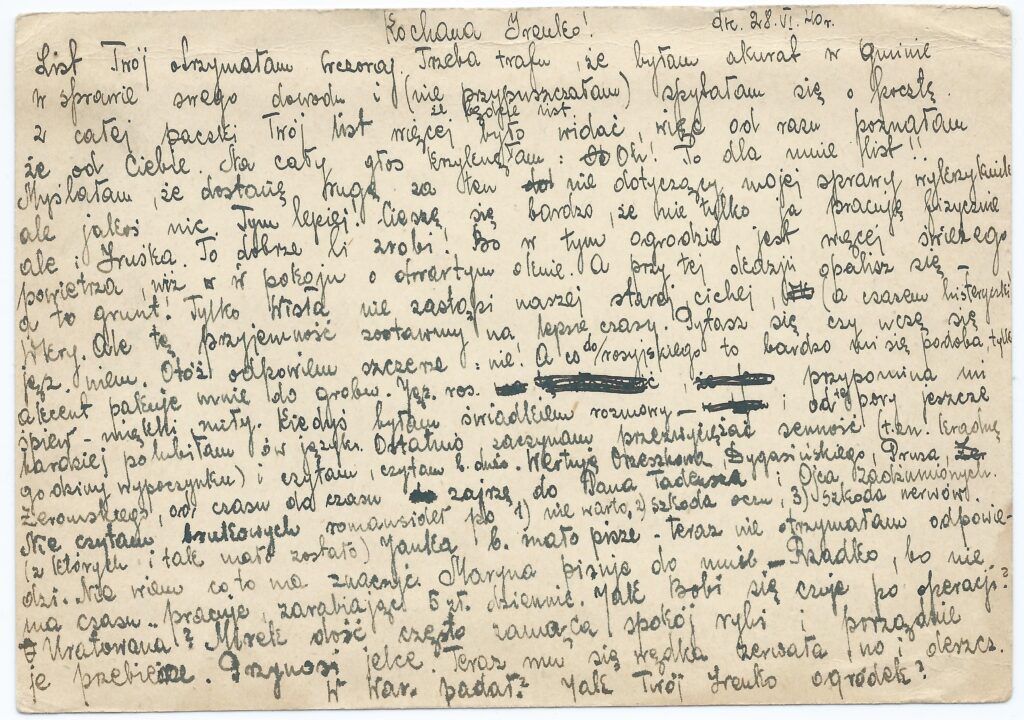 Kochana Irenko! dn. 28.VI.40r.
List Twój otrzymałam wczoraj. Trzeba trafu, że byłam akurat w Gminie
w sprawie swego dowodu i (nie przypuszczałam) spytałam się o pocztę.
że będzie list.
Z całej paczki Twój list więcej było widać, więc od razu poznałam
że od Ciebie. Na cały głos krzyknęłam: Oh! To dla mnie list!!
Myślałam, że dostanę burę za ten nie dotyczący mojej sprawy wykrzyknik
ale jakoś nic. Tym lepiej! Cieszę się bardzo, że nie tylko ja pracuję fizycznie
ale i Iruśka. To dobrze Ci zrobi! Bo w tym ogrodzie jest więcej świeżego
powietrza, niż w pokoju o otwartym oknie. A przy tej okazji opalisz się
a to grunt! Tylko Wisła nie zastąpi naszej starej, cichej, (a czasem histerycznej)
Wkry. Ale tę przyjemność zostawmy na lepsze czasy. Pytasz się, czy uczę się
jęz. niem. Otóż odpowiem szczerze: nie! A co do rosyjskiego to bardzo mi się podoba tylko
akcent pakuje mnie do grobu. Jęz. ros. przypomina mi
śpiew - miękki, miły. Kiedyś byłam świadkiem rozmowy - i od tej pory jeszcze
bardziej polubiłam ów język. Ostatnio zaczynam przezwyciężać senność (t.zn. kradnę
godziny wypoczynku) i czytam, czytam b. dużo. Wertuję Orzeszkową, Dygasińskiego, Prusa,
Żeromskiego, od czasu do czasu zajrzę do Pana Tadeusza i Ojca Zadżumionych.
Nie czytam brukowych romansideł bo 1) nie warto, 2) szkoda oczu, 3) szkoda nerwów.
(z których i tak mało zostało) Janka b. mało pisze - teraz nie otrzymałam odpowie-
dzi. Nie wiem co to ma znaczyć. Maryna pisuje do mnie - Rzadko, bo nie
ma czasu - pracuje, zarabiając 5 zł. dziennie. Jak Bobi się czuje po operacji?
Uratowana? Mirek dość często zamąca spokój ryb i porządnie
je przebiera. Przynosi jelce. Teraz mu się wędka zerwała no i deszcz.
W War. padał? Jak Twój Irenko ogródek?